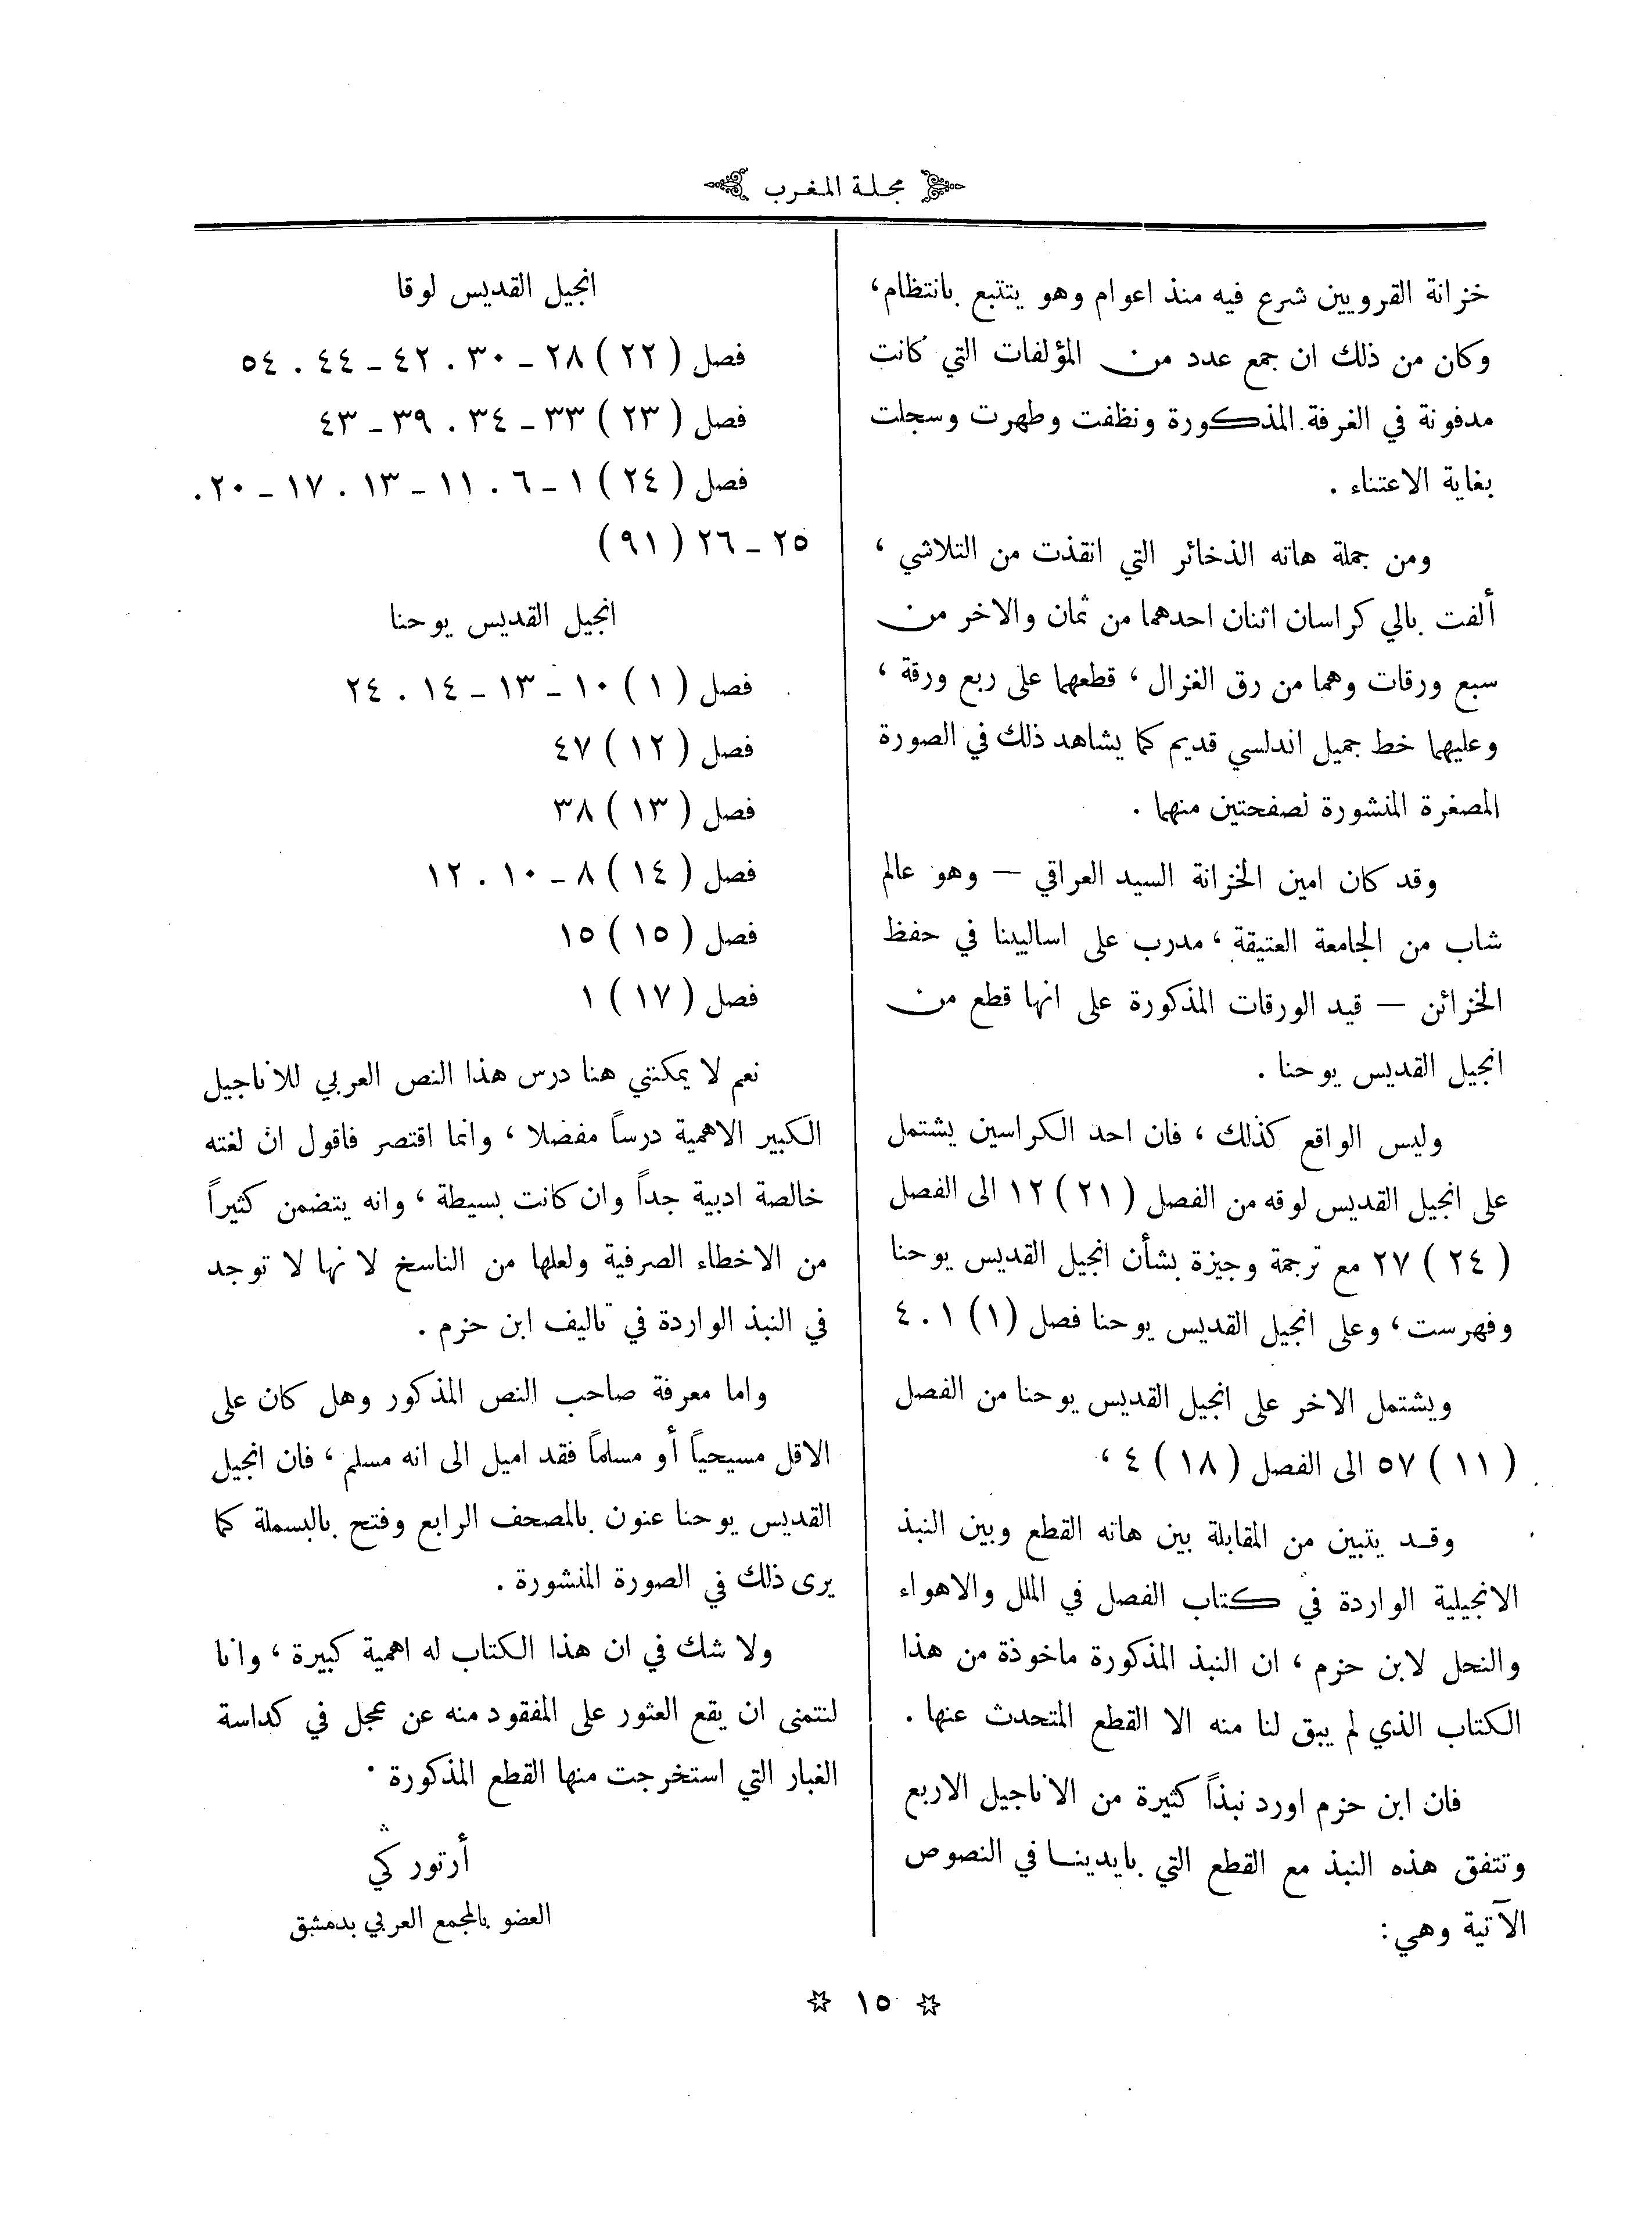 مجلة المغرب
خزانة القرويين شرع فيه منذ اعوام وهو يتتبع بانتظام،
وكان من ذلك ان جمع عدد من المؤلفات التي كانت
مدفونة في الغرفة المذكورة ونظفت وطهرت وسجلت
بغاية الاعتناء .
ومن جملة هاته الذخائر التي انقذت من التلاشي ،
ألفت بالي كراسان اثنان احدهما من ثمان والاخر من
سبع ورقات وهما من رق الغزال ، قطعهما على ربع ورقة ،
وعليهما خط جميل اندلسي قديم كما يشاهد ذلك في الصورة
المصغرة المنشورة لصفحتين منهما .
وقد كان امين الخزانة السيد العراقي — وهو عالم
شاب من الجامعة العتيقة ، مدرب على اساليبنا في حفظ
الخزائن — قيد الورقات المذكورة على انها قطع من
انجيل القديس يوحنا .
وليس الواقع كذلك ، فان احد الكراسين يشتمل
على انجيل القديس لوقه من الفصل (٢١) ١٢ الى الفصل
(٢٤) ٢٧ مع ترجمة وجيزة بشأن انجيل القديس يوحنا
وفهرست ، وعلى انجيل القديس يوحنا فصل (١) ١ . ٤
ويشتمل الاخر على انجيل القديس يوحنا من الفصل
(١١) ٥٧ الى الفصل (١٨) ٤ ،
وقد يتبين من المقابلة بين هاته القطع وبين النبذ
الانجيلية الواردة في كتاب الفصل في الملل والاهواء
والنحل لابن حزم ، ان النبذ المذكورة ماخوذة من هذا
الكتاب الذي لم يبق لنا منه الا القطع المتحدث عنها .
فان ابن حزم اورد نبذاً كثيرة من الاناجيل الاربع
وتتفق هذه النبذ مع القطع التي بايدينا في النصوص
الآتية وهي :
انجيل القديس لوقا
فصل (٢٢) ٢٨ – ٣٠ . ٤٢ – ٤٤ . ٥٤
فصل (٢٣) ٣٣ – ٣٤ . ٣٩ – ٤٣
فصل (٢٤) ١ – ٦ . ١١ – ١٣ . ١٧ – ٢٠ .
٢٥ – ٢٦ (٩١)
انجيل القديس يوحنا
فصل (١) ١٠ – ١٣ – ١٤ . ٢٤
فصل (١٢) ٤٧
فصل (١٣) ٣٨
فصل (١٤) ٨ – ١٠ . ١٢
فصل (١٥) ١٥
فصل (١٧) ١
نعم لا يمكنني هنا درس هذا النص العربي للاناجيل
الكبير الاهمية درساً مفضلا ، وانما اقتصر فاقول ان لغته
خالصة ادبية جداً وان كانت بسيطة ، وانه يتضمن كثيراً
من الاخطاء الصرفية ولعلها من الناسخ لانها لا توجد
في النبذ الواردة في تاليف ابن حزم .
واما معرفة صاحب النص المذكور وهل كان على
الاقل مسيحياً أو مسلماً فقد اميل الى انه مسلم ، فان انجيل
القديس يوحنا عنون بالمصحف الرابع وفتح بالبسملة كما
يرى ذلك في الصورة المنشورة .
ولا شك في ان هذا الكتاب له اهمية كبيرة ، وانا
لنتمنى ان يقع العثور على المفقود منه عن عجل في كداسة
الغبار التي استخرجت منها القطع المذكورة .
أرتور كي
العضو بالمجمع العربي بدمشق
١٥